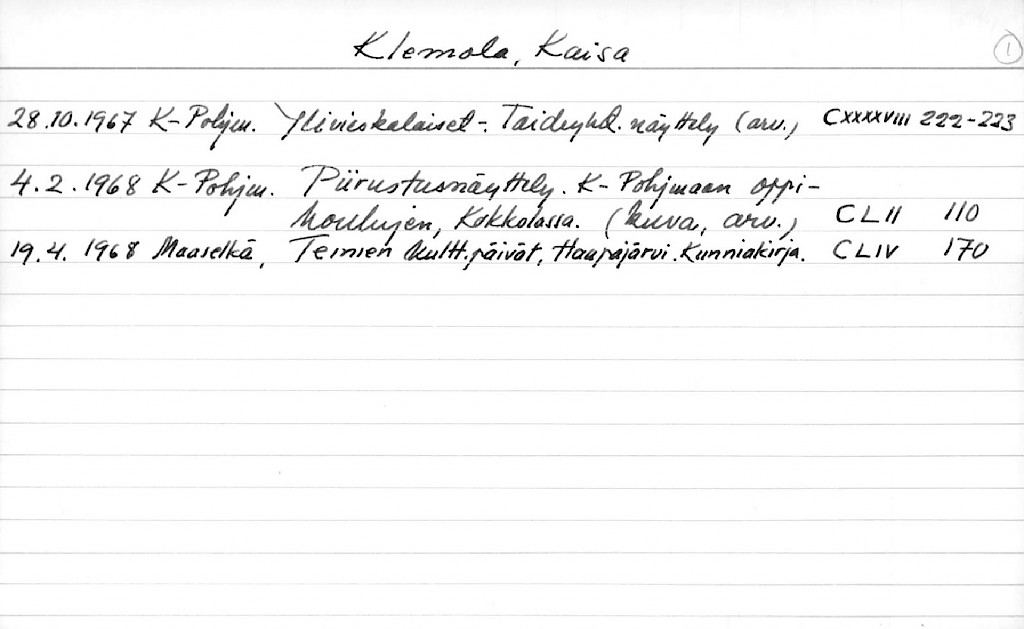 Klemola, Kaisa
1
28.10.1967 K-Pohjm. Ylivieskalaiset-. Taideyhd. näyttely (arv.) CXXXXVIII 222-223
4.2.1968 K-Pohjm. Piirustusnäyttely. K-Pohjmaan oppi-
koulujen, Kokkolassa. (kuva, arv.) CLII 110
19.4.1968 Maaselkä, Teinien kultt.päivät, Haapajärvi. Kunniakirja. CLIV 170